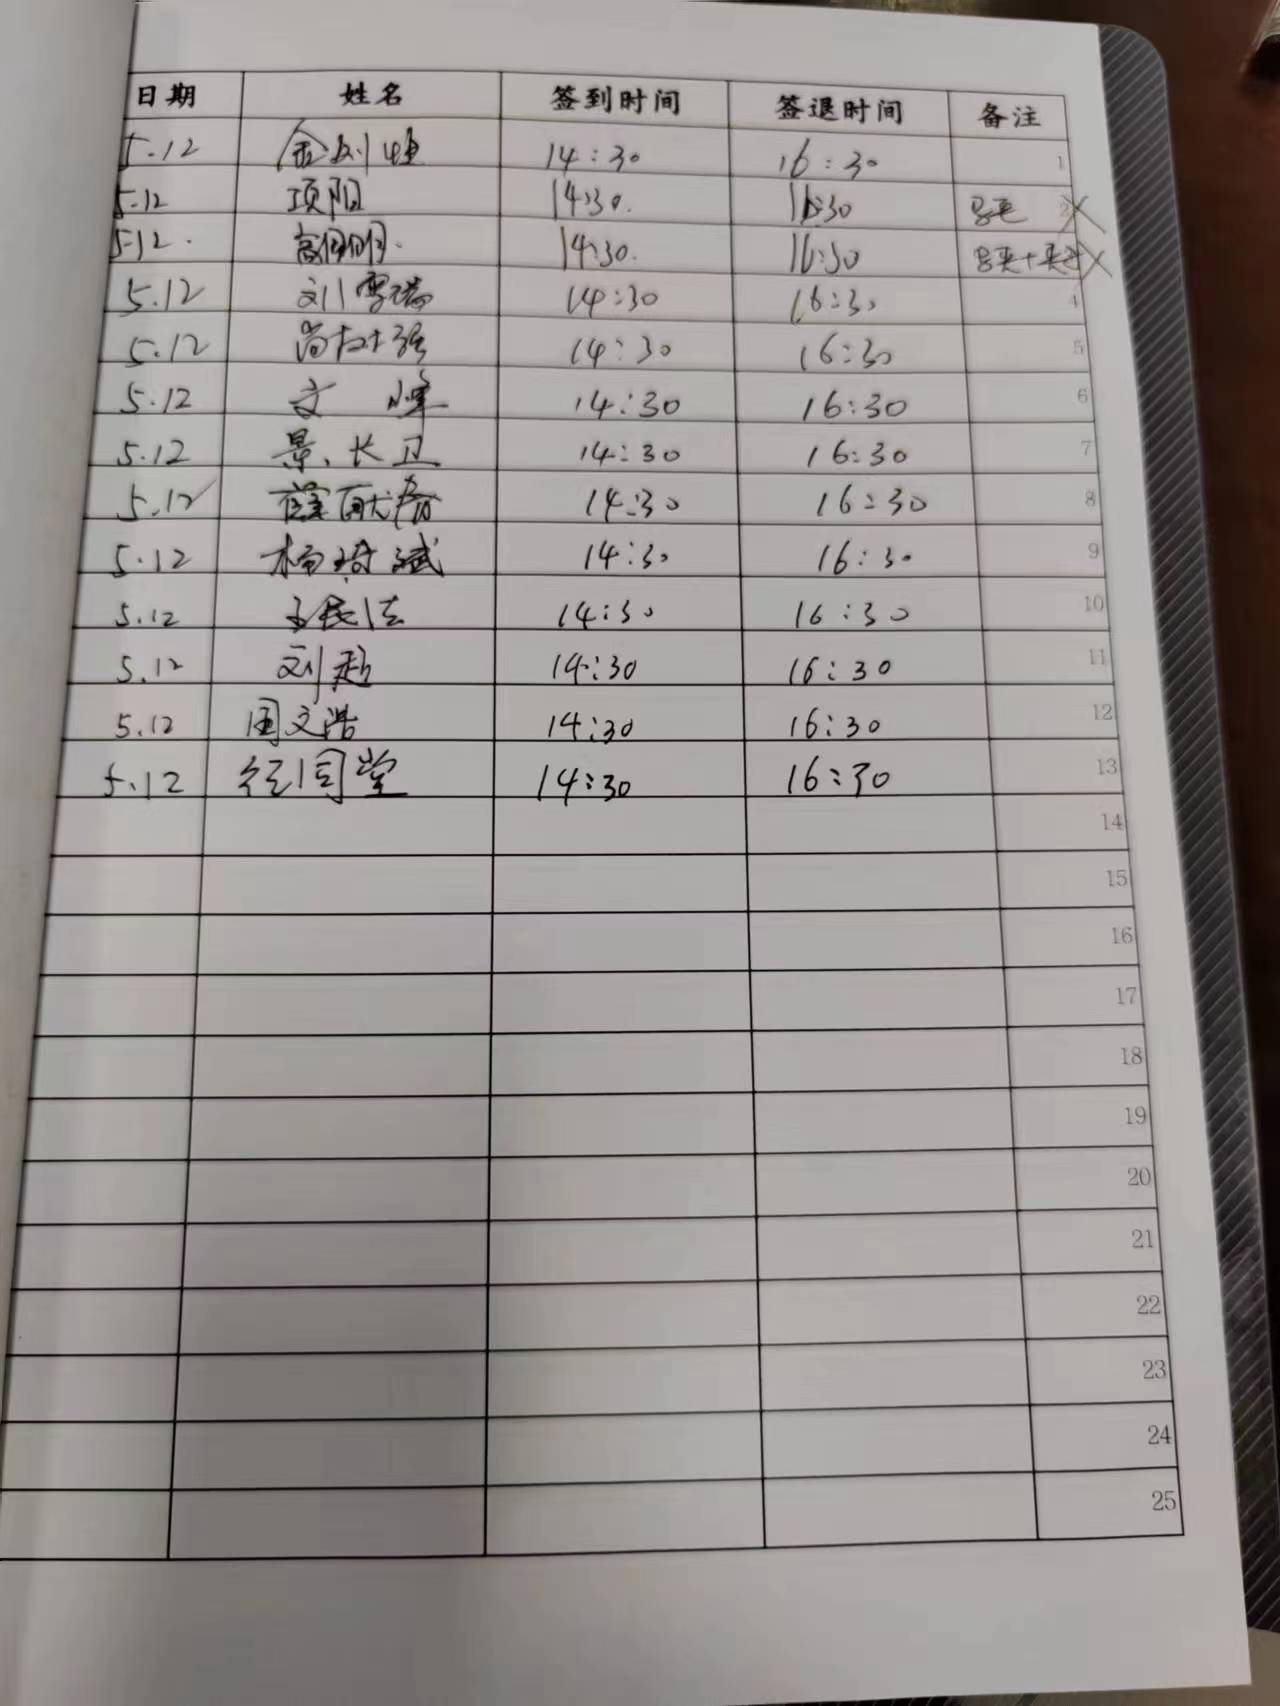 日期 姓名 签到时间 签退时间 备注
5.12 14:30 16:30 1
5.12 项阳 14:30. 16:30
5.12. 高明明. 14:30. 16:30
5.12 刘雪瑞 14:30 16:30 4
5.12 尚 强 14:30 16:30 5
5.12 文峰 14:30 16:30 6
5.12 景长卫 14:30 16:30 7
5.12 薛 14:30 16:30 8
5.12 杨 斌 14:30 16:30 9
5.12 14:30 16:30 10
5.12 刘超 14:30 16:30 11
5.12 周文浩 14:30 16:30 12
5.12 任同堂 14:30 16:30 13
14
15
16
17
18
19
20
21
22
23
24
25